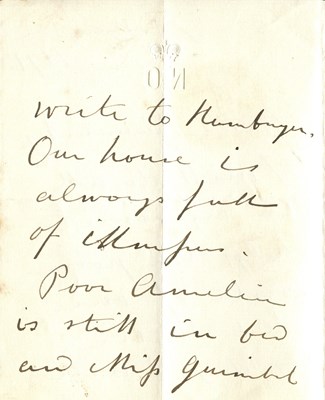 write to Hamburger.
Our house is
always full
of illnesses.
Poor Amelie
is still in bed
and Miss